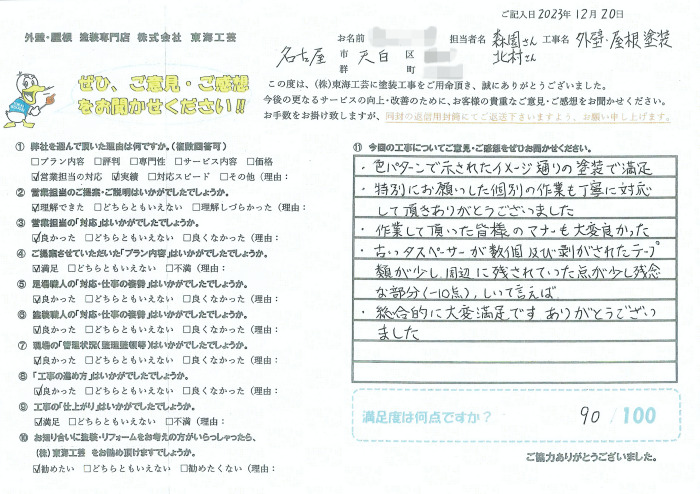 ご記入日2023年12月20日
外壁・屋根 塗装専門店 株式会社 東海工芸
お名前
担当者名 森園さん 北村さん 工事名 外壁・屋根塗装
名古屋 市郡 天白 区町
ぜひ、ご意見・ご感想
をお聞かせください!!
この度は、(株)東海工芸に塗装工事をご用命頂き、誠にありがとうございました。
今後の更なるサービスの向上・改善のために、お客様の貴重なご意見・ご感想をお聞かせください。
お手数をお掛け致しますが、同封の返信用封筒にてご返送下さいますよう、お願い申し上げます。
① 弊社を選んで頂いた理由は何ですか。(複数回答可)
□プラン内容 □評判 □専門性 □サービス内容 □価格
☑営業担当の対応 ☑実績 □対応スピード □その他(理由:
② 営業担当のご提案・ご説明はいかがでしたでしょうか。
☑理解できた □どちらともいえない □理解しづらかった(理由:
③ 営業担当の「対応」はいかがでしたでしょうか。
☑良かった □どちらともいえない □良くなかった(理由:
④ ご提案させていただいた「プラン内容」はいかがでしたでしょうか。
☑満足 □どちらともいえない □不満(理由:
⑤ 足場職人の「対応・仕事の姿勢」はいかがでしたでしょうか。
☑良かった □どちらともいえない □良くなかった(理由:
⑥ 塗装職人の「対応・仕事の姿勢」はいかがでしたでしょうか。
☑良かった □どちらともいえない □良くなかった(理由:
⑦ 現場の「管理状況(整理整頓等)はいかがでしたでしょうか。
☑良かった □どちらともいえない □良くなかった(理由:
⑧ 「工事の進め方」はいかがでしたでしょうか。
☑良かった □どちらともいえない □良くなかった(理由:
⑨ 工事の「仕上がり」はいかがでしたでしょうか。
☑満足 □どちらともいえない □不満(理由:
⑩ お知り合いに塗装・リフォームをお考えの方がいらっしゃったら、
(株)東海工芸 をお勧め頂けますでしょうか。
☑勧めたい □どちらともいえない □勧めたくない(理由:
⑪ 今回の工事についてご意見・ご感想をぜひお聞かせください。
・色パターンで示されたイメージ通りの塗装で満足
・特別にお願いした個別の作業も丁寧に対応
して頂きありがとうございました
・作業して頂いた皆様のマナーも大変良かった
・古いタスペーサーが数個及び剥がされたテープ
類が少し周辺に残されていた点が少し残念
な部分(-10点)、しいて言えば
・総合的に大変満足です ありがとうござい
ました
満足度は何点ですか? 90/100
ご協力ありがとうございました。